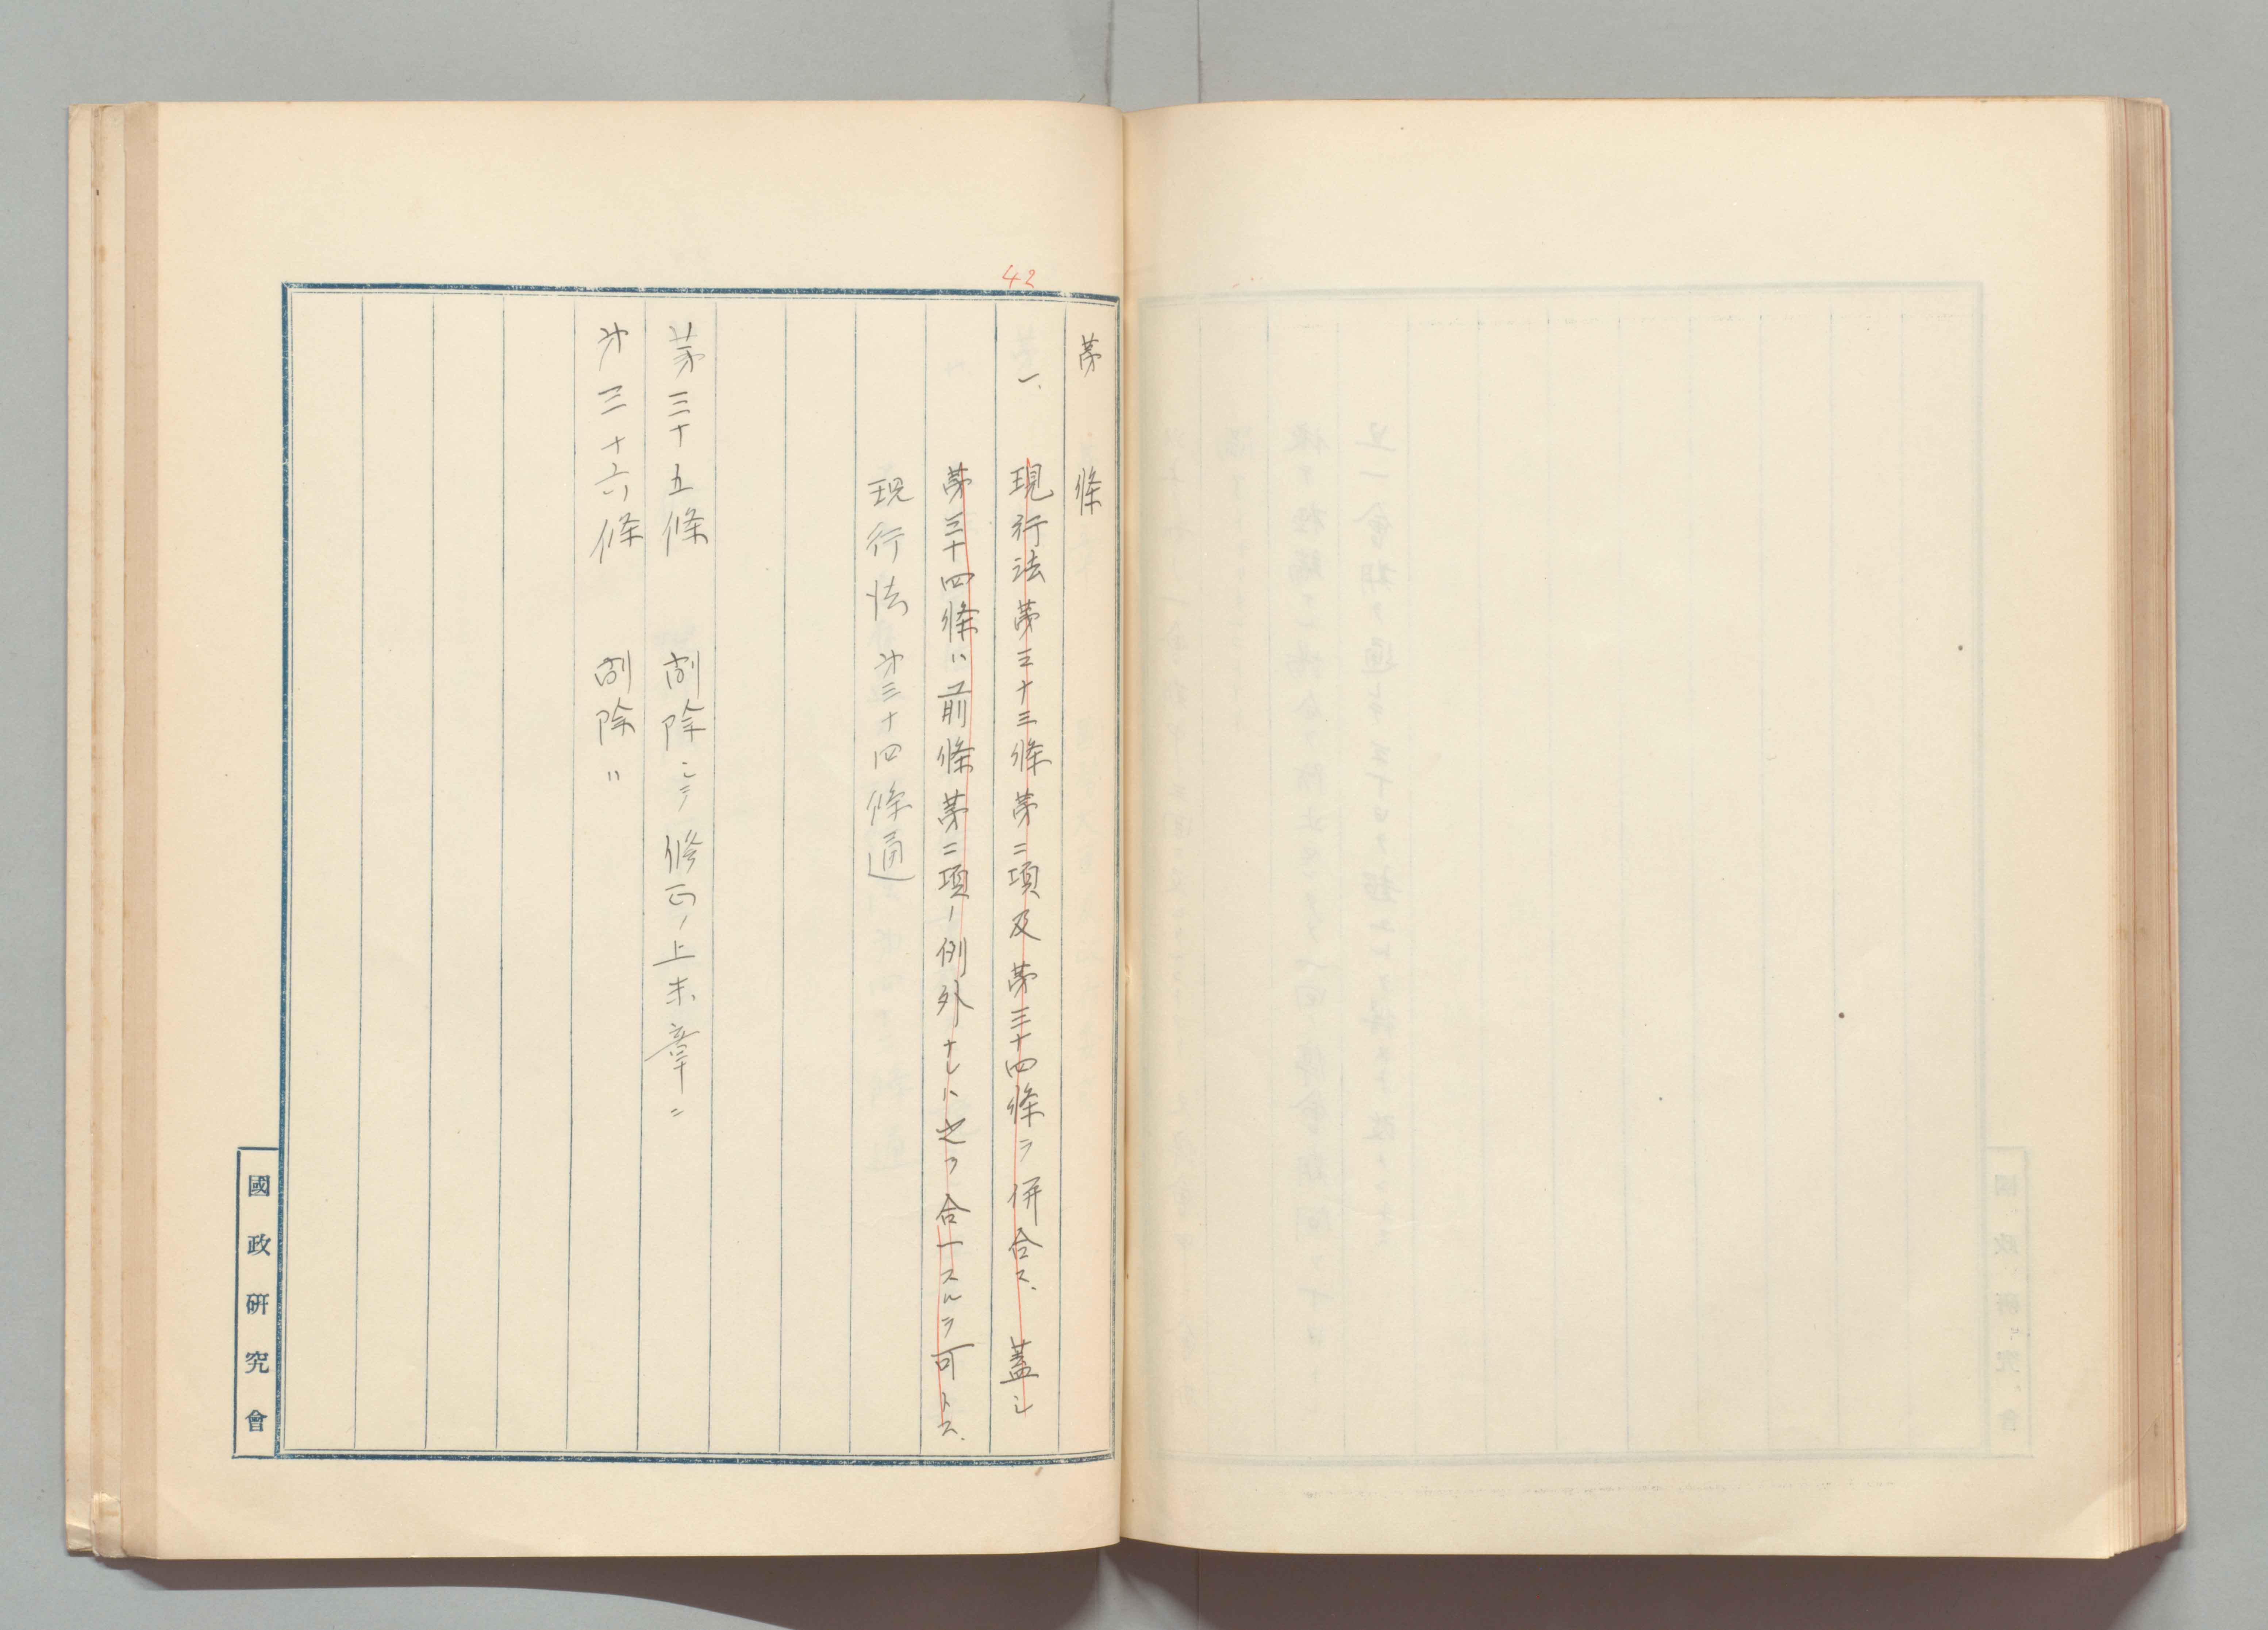 42
第　條
一、現行法第三十三條第二項及第三十四條ヲ併合ス、蓋シ
第三十四條ハ前條第二項ノ例外ナレハ之ヲ合一スルヲ可トス、
現行法第三十四條通
第三十五條　削除シテ修正ノ上末章ニ
第三十六條　削除〃
國政研究會